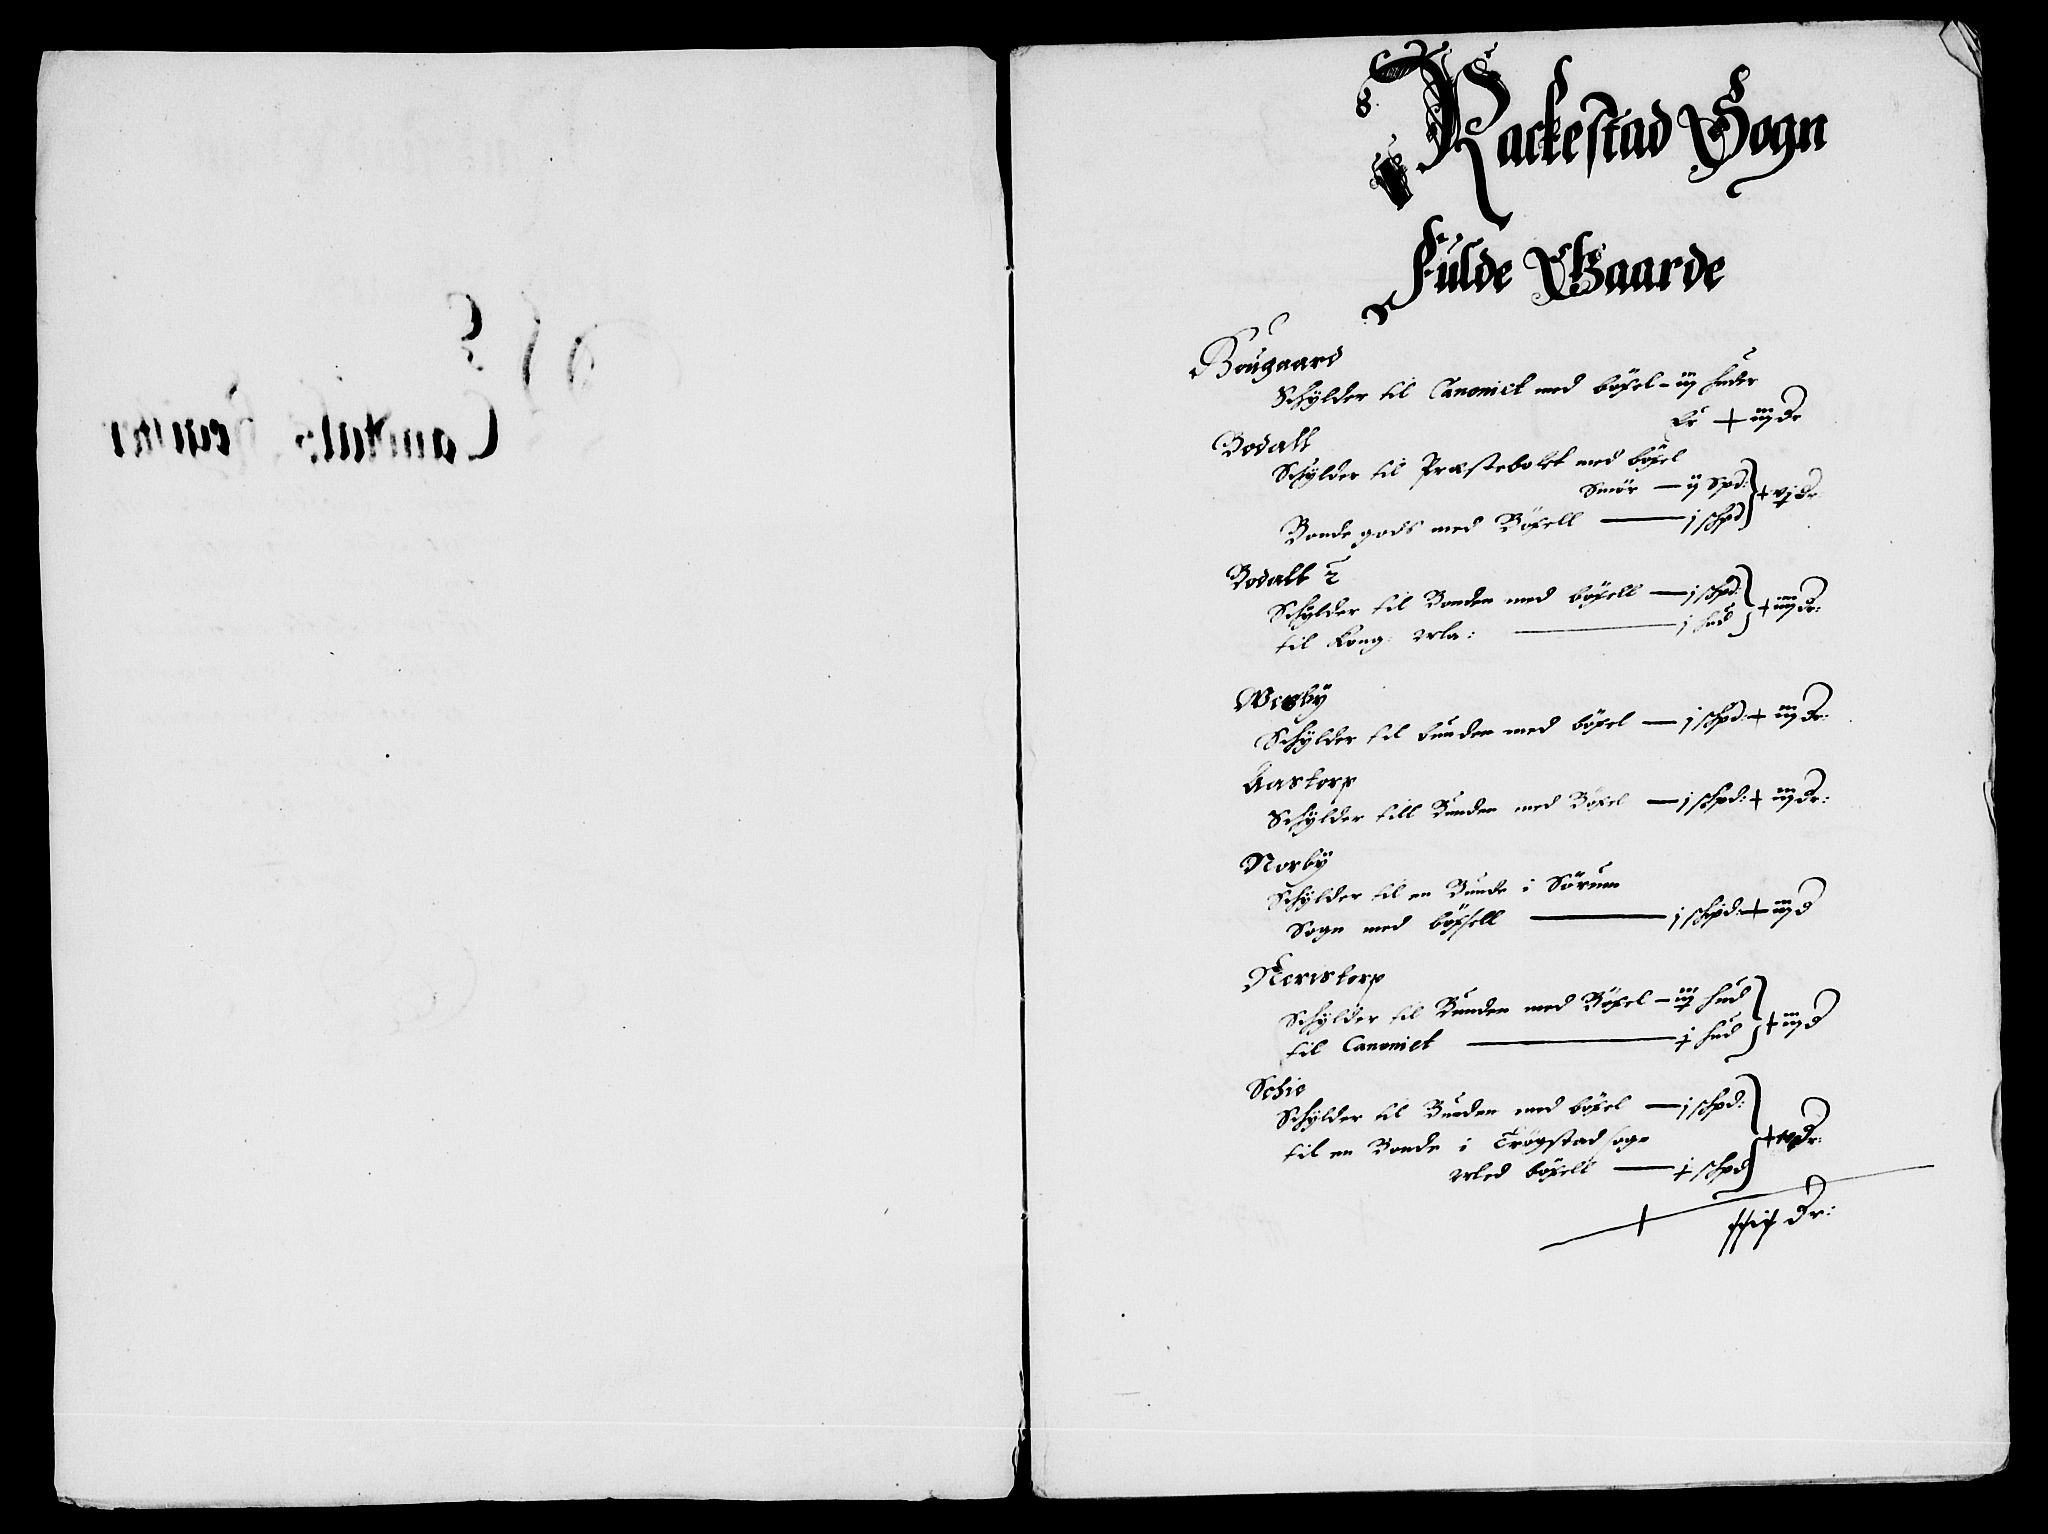 Rackestad Sogn
Fulde Gaarde
Bougaard
Schylder til Canonict med böxel - iij huder
Er + iiij dr
Bodall
Schylder til Præstebolet med böxel
Smör - ij Spd:
Bonde gods med Böxell - j schpd + vj dr
Bodall 2
Schylder til Bonden med böxell - j schpd:
til Kong: Ma: - j hud + iiij dr:
Wesby
Schylder til bunden med böxel - j schpd: + iiij dr:
Aastorp
Schylder till Bunden med Böxel - j schpd: + iiij dr:
Norby
Schylder til en Bunde i Sörum
Sogn med böxsell - j schpd: + iiij d
Neristorp
Schylder til Bunden med Böxel - iij hud
til Canonict - j hud + iiij d
Schie
Schylder til Bunden med böxel - j schpd:
til en Bonde i Trögstad sogn
Med böxell - j schpd + dr:
+ dr: